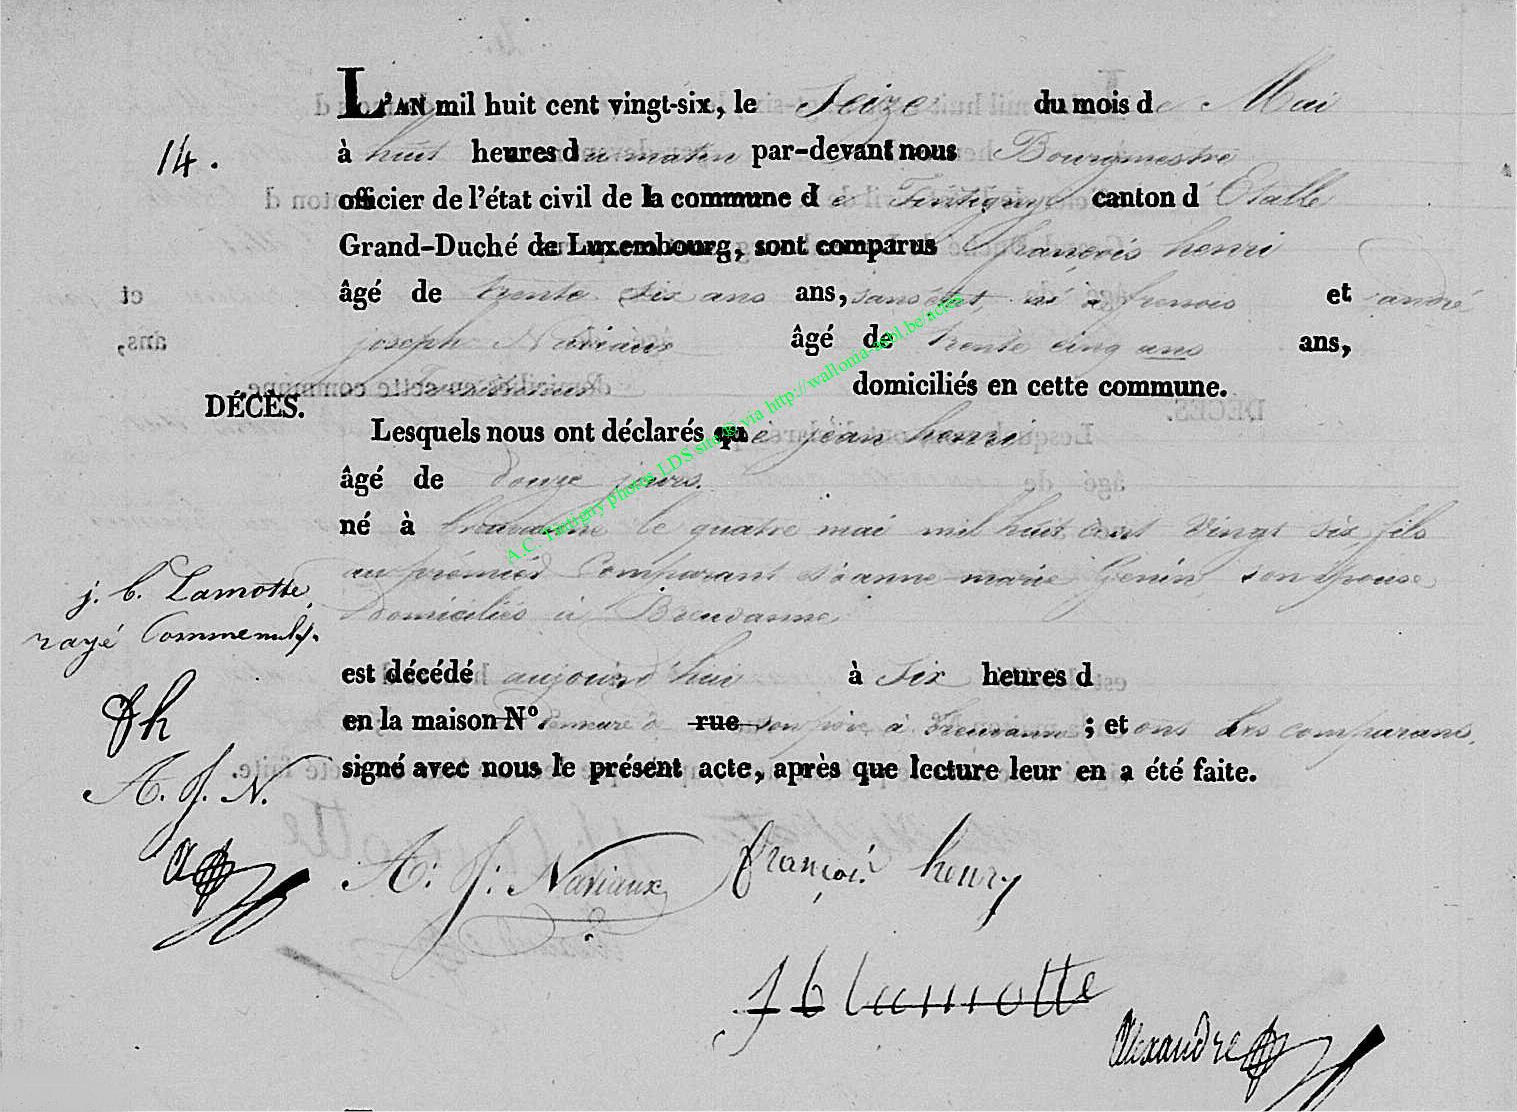 L'AN mil huit cent vingt-six, le Seize du mois de Mai
14. à huit heures du matin par-devant nous Bourgmestre
officier de l'état civil de la commune de Tintigny canton d'Etalle
Grand-Duché de Luxembourg, sont comparus françois henri
âgé de trente six ans ans, sans état, à frenois et andré
joseph Naviaux âgé de trente cinq ans ans,
domiciliés en cette commune.
DÉCÈS.
Lesquels nous ont déclarés que jean henri
âgé de douze jours.
né à le quatre mai mil huit cent vingt six fils
au prémier Comparant d'anne marie Genin, son épouse
domiciliés à Breuvanne
j. b. Lamotte,
rayé
est décédé aujourd'hui à Six heures d
en la maison N° demeure de rue son père à ; et ont les comparans
signé avec nous le présent acte, après que lecture leur en a été faite.
fh
A. J. N.
A. J. Naviaux françois henry
J b lamotte
Alexandre
A.C. Tintigny photos LDS site © via http://wallonia-asbl.be/actes